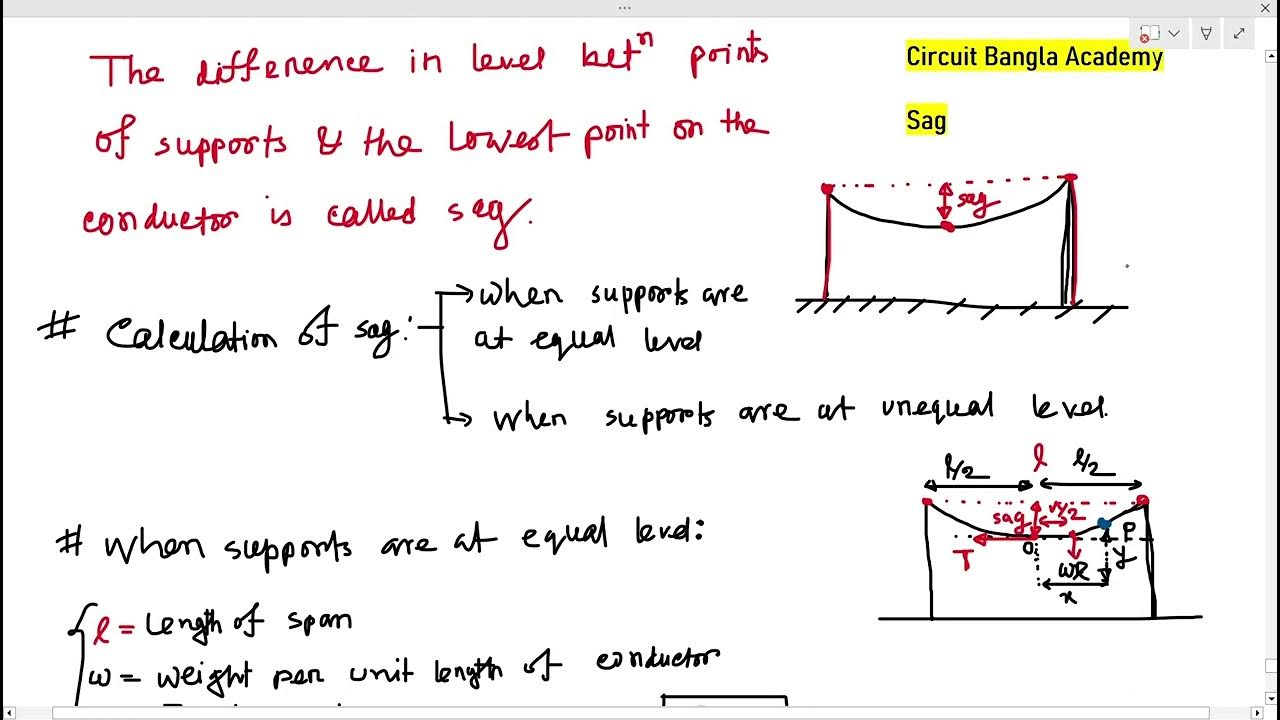 The difference in level betⁿ points
of supports & the lowest point on the
conductor is called sag.
Circuit Bangla Academy
Sag
sag
# Calculation of sag:
when supports are
at equal level
when supports are at unequal level.
# When supports are at equal level:
l = Length of span
w = weight per unit length of conductor
l/2 l l/2
sag x/2
O P
T y
x